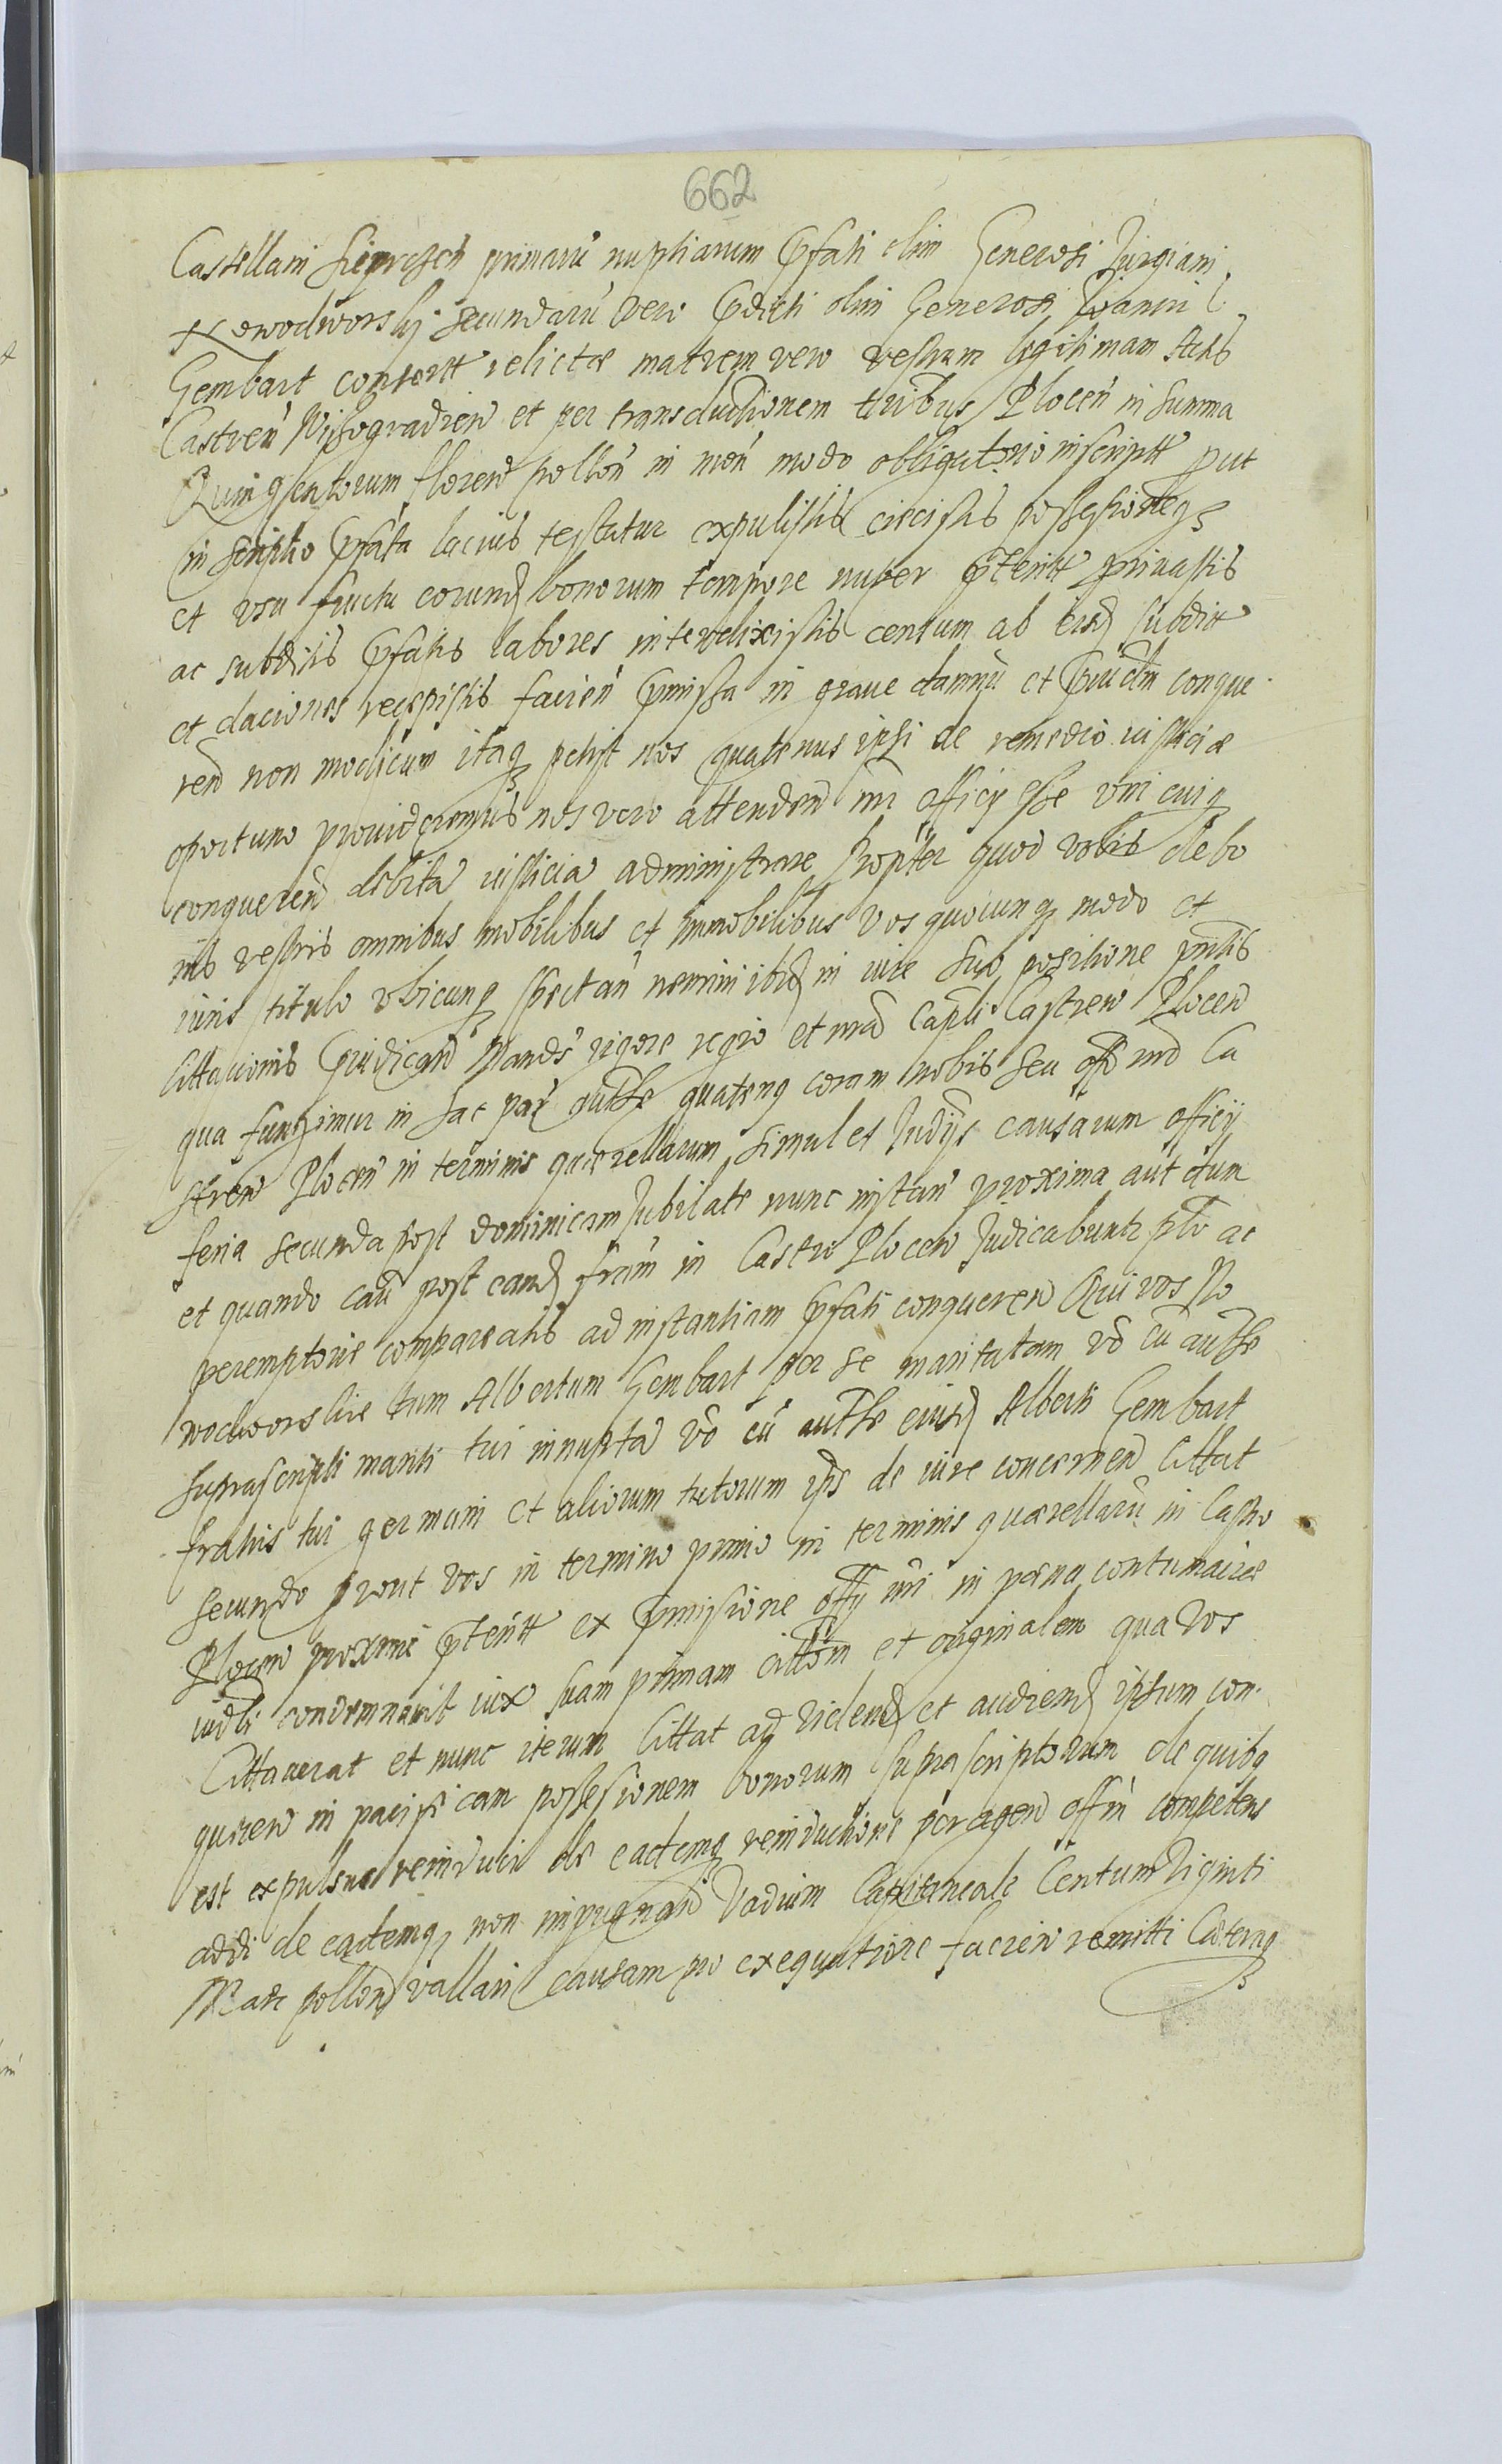 662
Castellani Sieprcsch primariu nuptiarum pfati olim Generosi Jurgiani
Nowodworskj secundaru vero pdicti olim Generosi Joanni
Gembart consortt relictæ matrem vero vestram legitimam Actis
Castren Wissogradien et per transductionem tribus Plocen in summa
Quingentorum floren pollon in mon modo obligatorio inscriptt put
inscriptio pfata lacius testatur expulistis eiecistis possessioneq
et usu fructu eorund bonorum tempore nuper pteritt privastis
ac subditis pfatis labores interdixistis censum ab eisd subditt
et daciones recepistis facien pmissa in graue damnu et piudm conque
ren non modicum itaq petijt nos quatenus ipsi de remedio iusticiæ
oportuno provideremus nos vero attenden nri officij esse uni cuiq
conqueren debita iusticia administrare Propter quod vobis de bo
nis vestris omnibus mobilibus et immobilibus vos quocunq modo et
iuris titulo ubicunq spectan nemini ibid in iure suo positione pntis
Cittationis piudican Mands rigore regio et nra Capli Castren Plocen
qua fungimur in hac par autthe quatenq coram nobis seu offo nro Ca
stren Plocen in terminis quærellarum simul et Judijs causarum officij
feria secunda post dominicam Jubilate nunc instan proxima aut dum
et quando cau post eand fram in Castro Plocen Judicabuntr pto ac
peremptorie compareatis ad instantiam pfati conqueren Qui vos No
wodworskie tum Albertum Gembart per se maritatam vo cu autthe
suprascripti mariti tui innupta vo cu autthe eiusd Alberti Gembart
fratris tui germani et aliorum tutorum ips de iure concernen Cittat
secundo prout vos in termino primo in terminis quærellaru in Castro
Plocen proxime pteritt ex pmissione offij nri in pœna contumaciæ
iudli condemnavit iux suam primam Cittom et originalem qua vos
Cittaverat et nunc iterum Cittat ad videnд et audienд ipsum con
quæren in pacificam possesionem bonorum suprascriptorum de quibq
est expulsus reinduci de eademq reinductione peragen offm competens
addi de eademq non impugnan Vadium Capitaneale Centum Viginti
Marc pollon vallari causam pro exequutione facien remitti Cæteraq